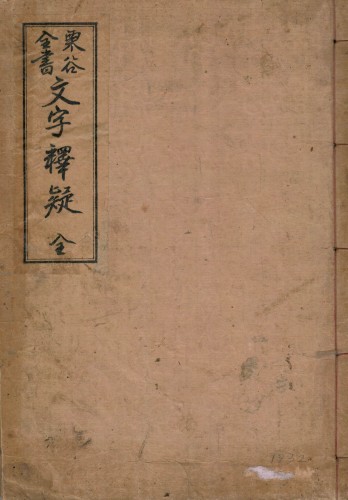 栗谷
全書
文字釋疑 全